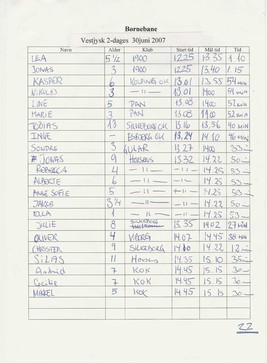 Børnebane
Vestjysk 2-dages 30juni 2007
Navn Alder Klub Start tid Mål tid Tid
LEA 5½ 1900 12.25 13.35 1 10
JONAS 3 1900 12.25 13.40 1 15
KASPER 6 KOLDING OK 13.01 13.55 54 min
NIKOLAJ 3 —11— 13.01 14.00 59 min
LINE 5 PAN 13.08 14.00 52 min
MARIE 7 PAN 13.08 52 min
TOBIAS 13 SILKEBORG OK 13.16 13.56 40 min
INGE – ESBJERG OK 13.24 14.10 46 min
SOLDRE 3 13.27 14.00 33
JONAS 9 HORSENS 13.32 14.22 50
REBECCA 4 —11— —11— 14.25 53
ALBERTE 6 —11— —11— 14.25 53
ANNE SOFIE 5 —11— —11— 14.25 53
JAKOB —11— —11— 14.22 50
ELLA 1 —11— —11— 14.25 53
JULIE 8 13.35 14.02 27 min
OLIVER 4 VIBORG 14.07 14.45 38 min
CHRISTER 9 SILKEBORG 14.10 14.22 12
SILAS 11 Horsens 14.35 15.10 35
Astrid 7 KOK 14.45 15.15 30
Cecilie 7 KOK 14.45 15.15 30
MIKKEL 5 KOK 14.45 15.15 30
22